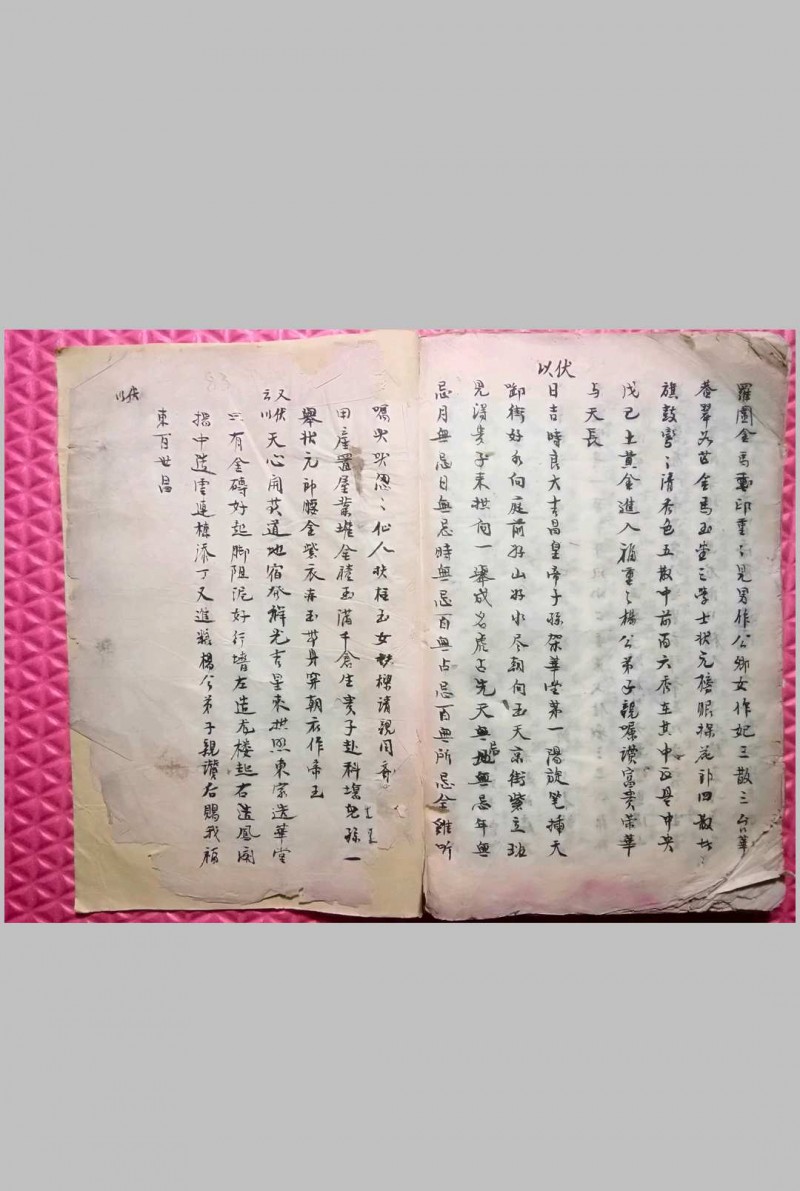 羅圍金馬 印重〻見男作公卿女作妃三散三台華
蓋翠 金馬玉堂三學士狀元榜眼探花郎四散
旗鼓 〻清秀色五散中前百六秀在其中正是中央
戊己土黃金進入福重〻楊公弟子親囑讚富貴榮華
与天長
以伏
日吉時良大吉昌皇帝子孫架華堂第一陽旋筆揷天
街好水向庭前好山好水尽朝向玉天京街紫立班
見得貴子來拱向一舉成名虎 先天無 無忌年無
忌月無忌日無忌時無忌百無占忌百無所忌金雞听
囑 〻仙人扶柱玉女扶樑請親同
田產置屋業堆金積玉滿千倉生貴子赴科 兒孫一
舉狀元郎腰金紫衣 玉帶身穿朝衣作帝王
又云
以伏
天心開黃道地宿發祥光吉星來拱照東家造華堂
只有金磚好起腳 泥好行墻左造龙樓起右造鳳閣
中造雲連棟添丁又進粮楊公弟子親讚右賜我福
東百世昌
以伏